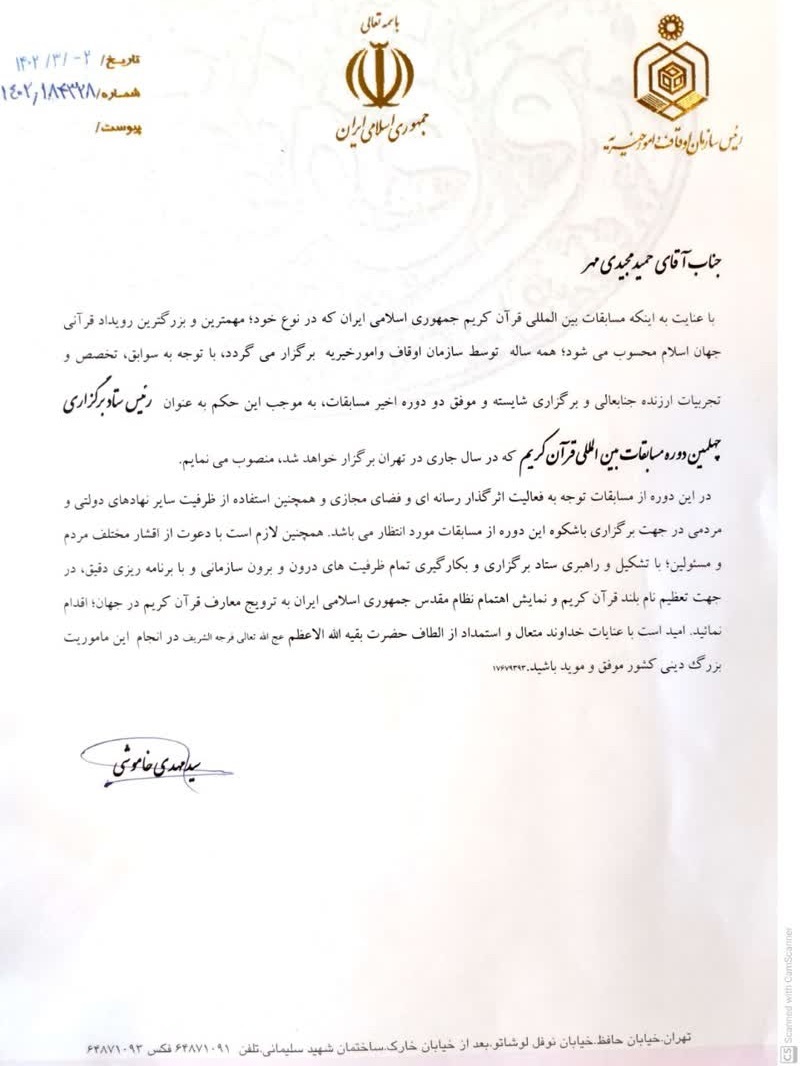 باسمه تعالی
جمهوری اسلامی ایران
رئیس سازمان اوقاف و امور خیریه
تاریخ/ ۱۴۰۲/۳/۰۲
شماره/ ۱۴۰۲/۱۸۴۳۲۸
پیوست/
جناب آقای حمید مجیدی مهر
با عنایت به اینکه مسابقات بین المللی قرآن کریم جمهوری اسلامی ایران که در نوع خود؛ مهمترین و بزرگترین رویداد قرآنی
جهان اسلام محسوب می شود؛ همه ساله توسط سازمان اوقاف وامورخیریه برگزار می گردد، با توجه به سوابق، تخصص و
تجربیات ارزنده جنابعالی و برگزاری شایسته و موفق دو دوره اخیر مسابقات، به موجب این حکم به عنوان رئیس ستاد برگزاری
چهلمین دوره مسابقات بین المللی قرآن کریم که در سال جاری در تهران برگزار خواهد شد، منصوب می نمایم.
در این دوره از مسابقات توجه به فعالیت اثرگذار رسانه ای و فضای مجازی و همچنین استفاده از ظرفیت سایر نهادهای دولتی و
مردمی در جهت برگزاری باشکوه این دوره از مسابقات مورد انتظار می باشد. همچنین لازم است با دعوت از اقشار مختلف مردم
و مسئولین؛ با تشکیل و راهبری ستاد برگزاری و بکارگیری تمام ظرفیت های درون و برون سازمانی و با برنامه ریزی دقیق، در
جهت تعظیم نام بلند قرآن کریم و نمایش اهتمام نظام مقدس جمهوری اسلامی ایران به ترویج معارف قرآن کریم در جهان؛ اقدام
نمائید. امید است با عنایات خداوند متعال و استمداد از الطاف حضرت بقیه الله الاعظم عج الله تعالی فرجه الشریف در انجام این ماموریت
بزرگ دینی کشور موفق و موید باشید.۱۷۶۷۹۳۹۳
سید مهدی خاموشی
تهران.خیابان حافظ.خیابان نوفل لوشاتو.بعد از خیابان خارک.ساختمان شهید سلیمانی.تلفن ۶۴۸۷۱۰۹۱ فکس ۶۴۸۷۱۰۹۳
CS Scanned with CamScanner